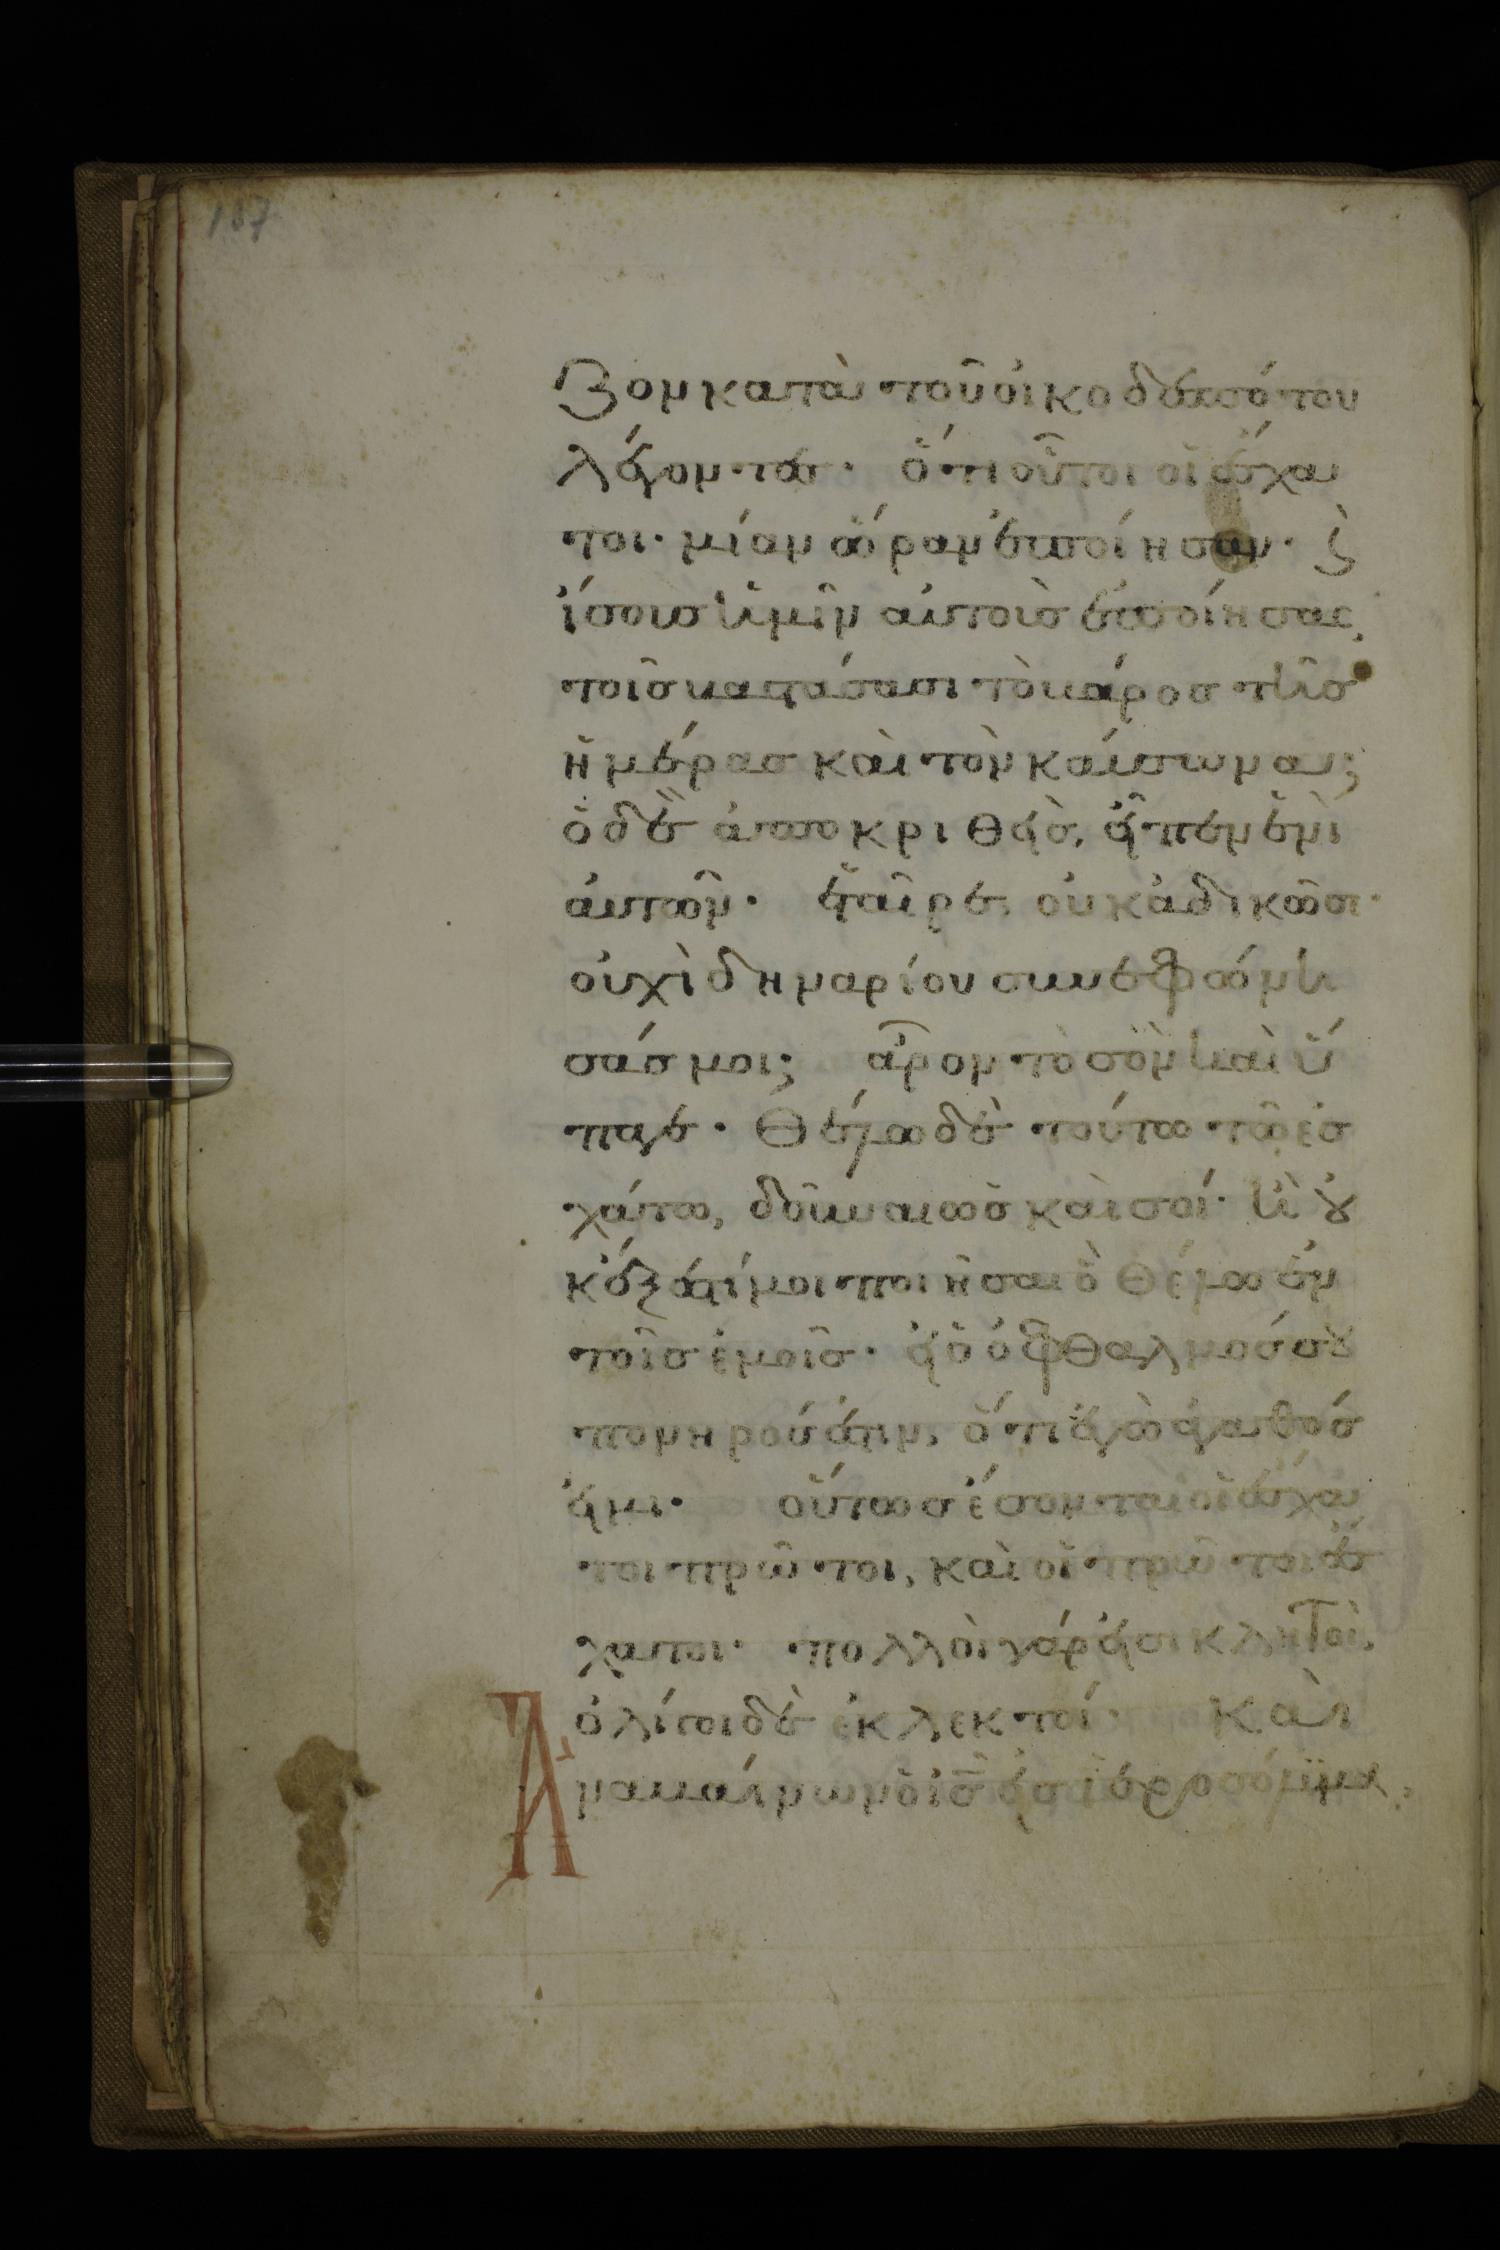 137
ζον κατὰ τοῦ οἰκοδεσπότου
λέγοντες· ὅτι οὗτοι οἱ ἔσχα
τοι· μίαν ὥραν ἐποίησαν· ϛ
ἴσους ἡμῖν αὐτοὺς ἐποίησας
τοῖς βαστάσασι τὸ βάρος τῆς
ἡμέρας καὶ τὸν καύσωνα;
ὁ δὲ ἀποκριθεὶς, εἶπεν ἑνὶ
αὐτῶν· ἑταῖρε, οὐκ ἀδικῶ σε·
οὐχὶ δηναρίου συνεφώνη
σάς μοι; ἆρον τὸ σὸν καὶ ὕ
παγε· Θέλω δὲ τούτω τῶ ἐσ
χάτω, δοῦναι ὡς καὶ σοί· ἢ ȣ
κ ἔξεστί μοι ποιῆσαι ὃ θέλω ἐν
τοῖς ἐμοῖς· εἰ ὁ ὀφθαλμός σȣ
πονηρός ἐστιν, ὅτι ἐγὼ ἀγαθός
εἰμι· οὕτως ἔσονται οἱ ἔσχα
τοι πρῶτοι, καὶ οἱ πρῶτοι ἔσ
χατοι· πολλοὶ γάρ εἰσι κλητοὶ,
ὀλίγοι δὲ ἐκλεκτοί· Καὶ
ἀναβαίνων ὁ ἰς εἰς ἱεροσόλυμα,